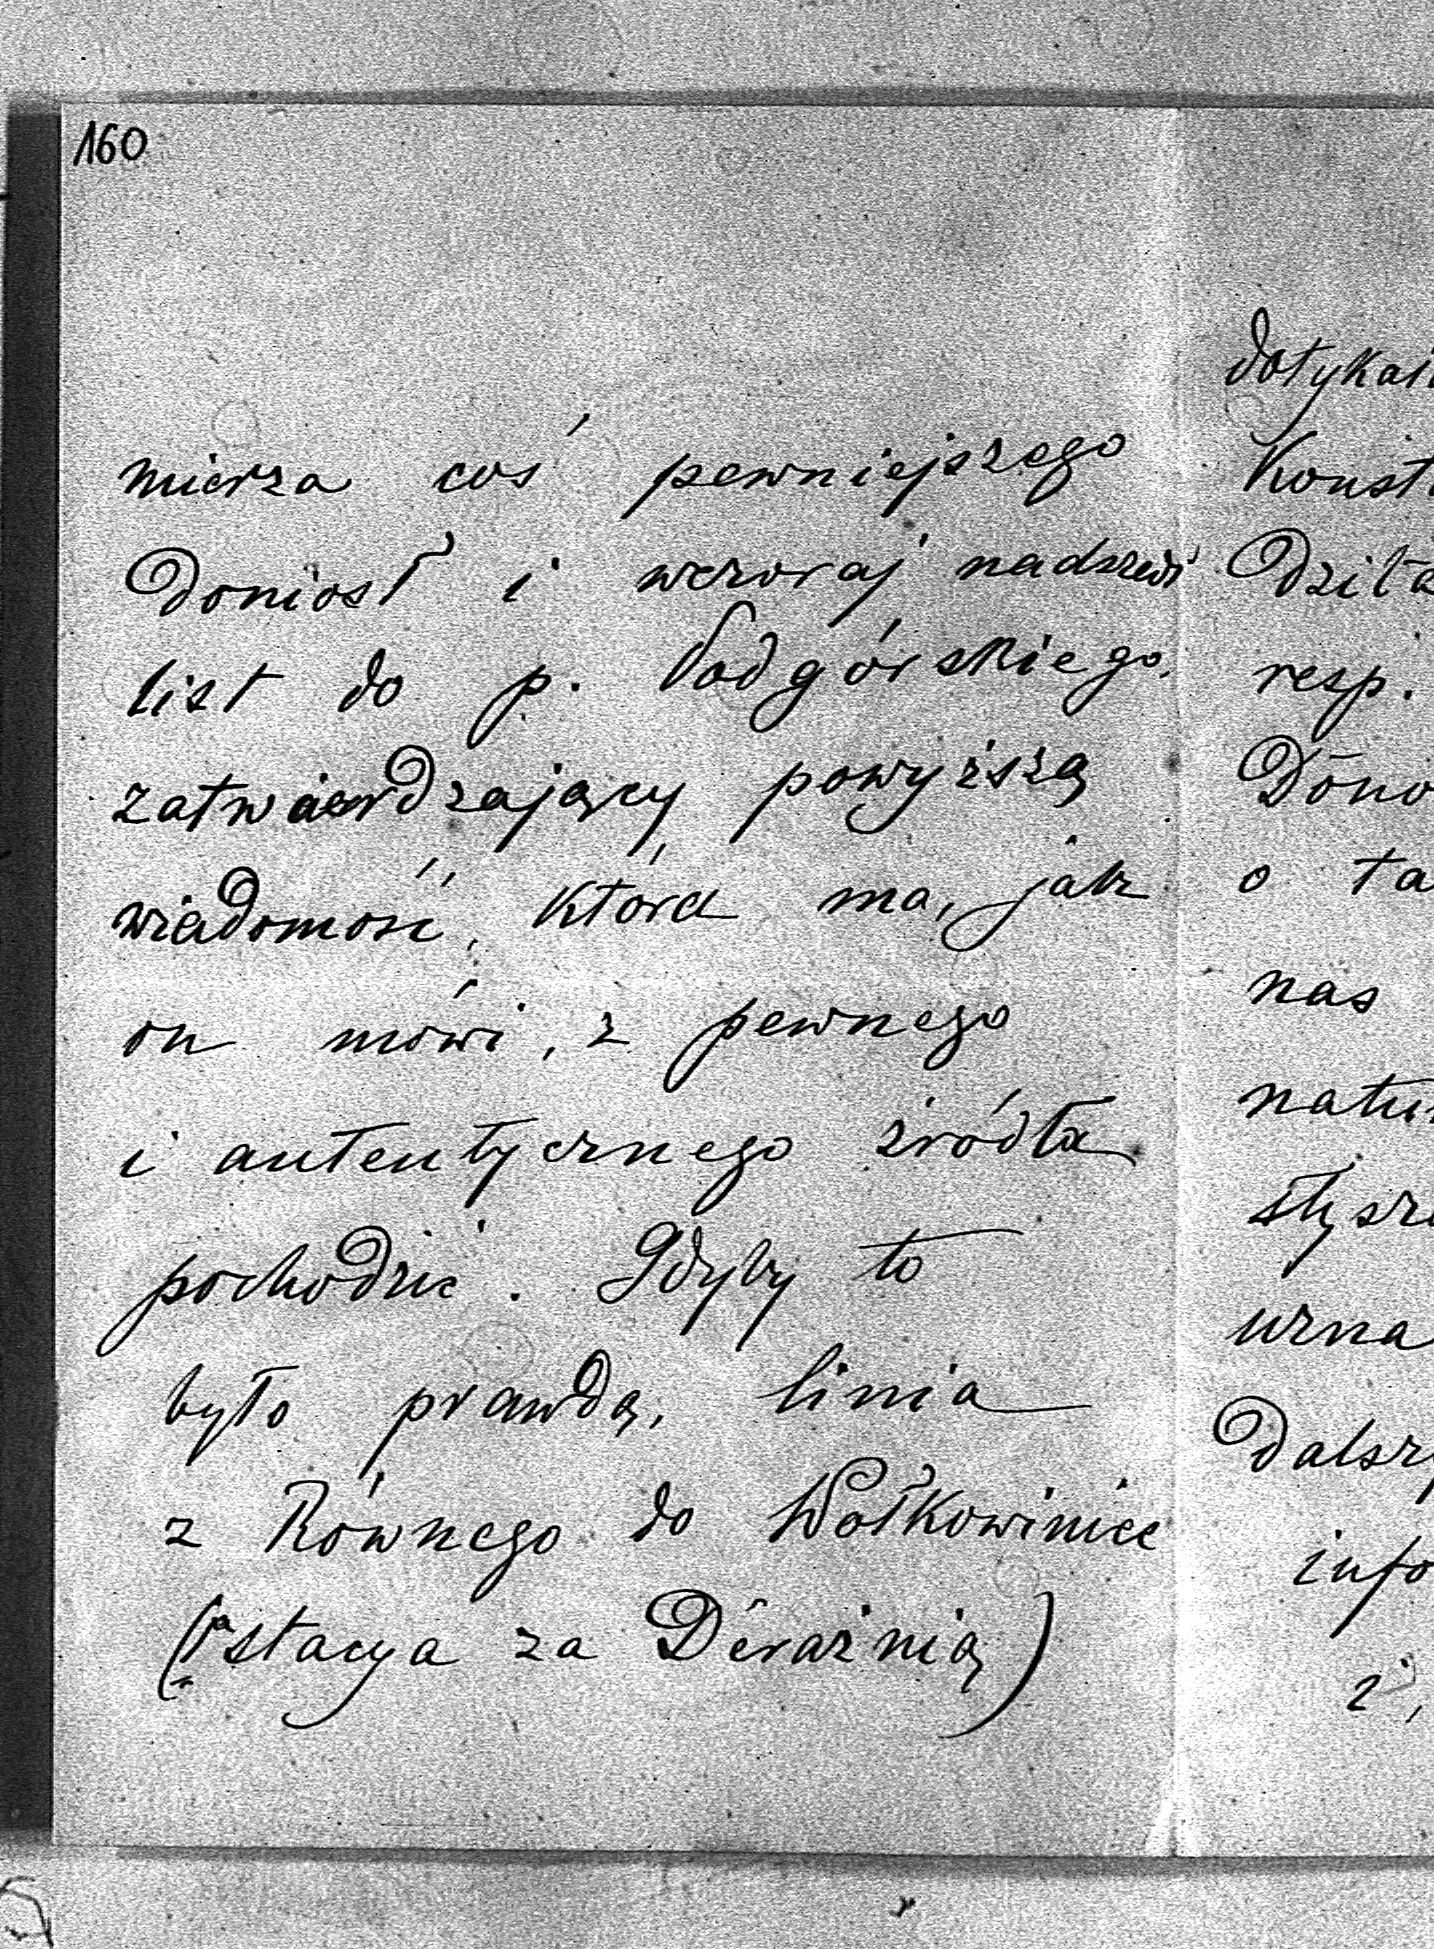 160
mierza coś pewniejszego
doniosł i wczoraj nadszedł
list do p. Podgórskiego,
zatwierdzający powyższą
wiadomość, która ma, jak
on mówi, z pewnego
i autentycznego źródła
pochodzić. Gdyby to
było prawdą, linia
z Równego do Wołkowiniec
(stacya za Deraźnią)
dotykał
Konst
Dził
resp.
Dōno
o ta
nas
natu
słysz
uzna
Dalszy
info
i,